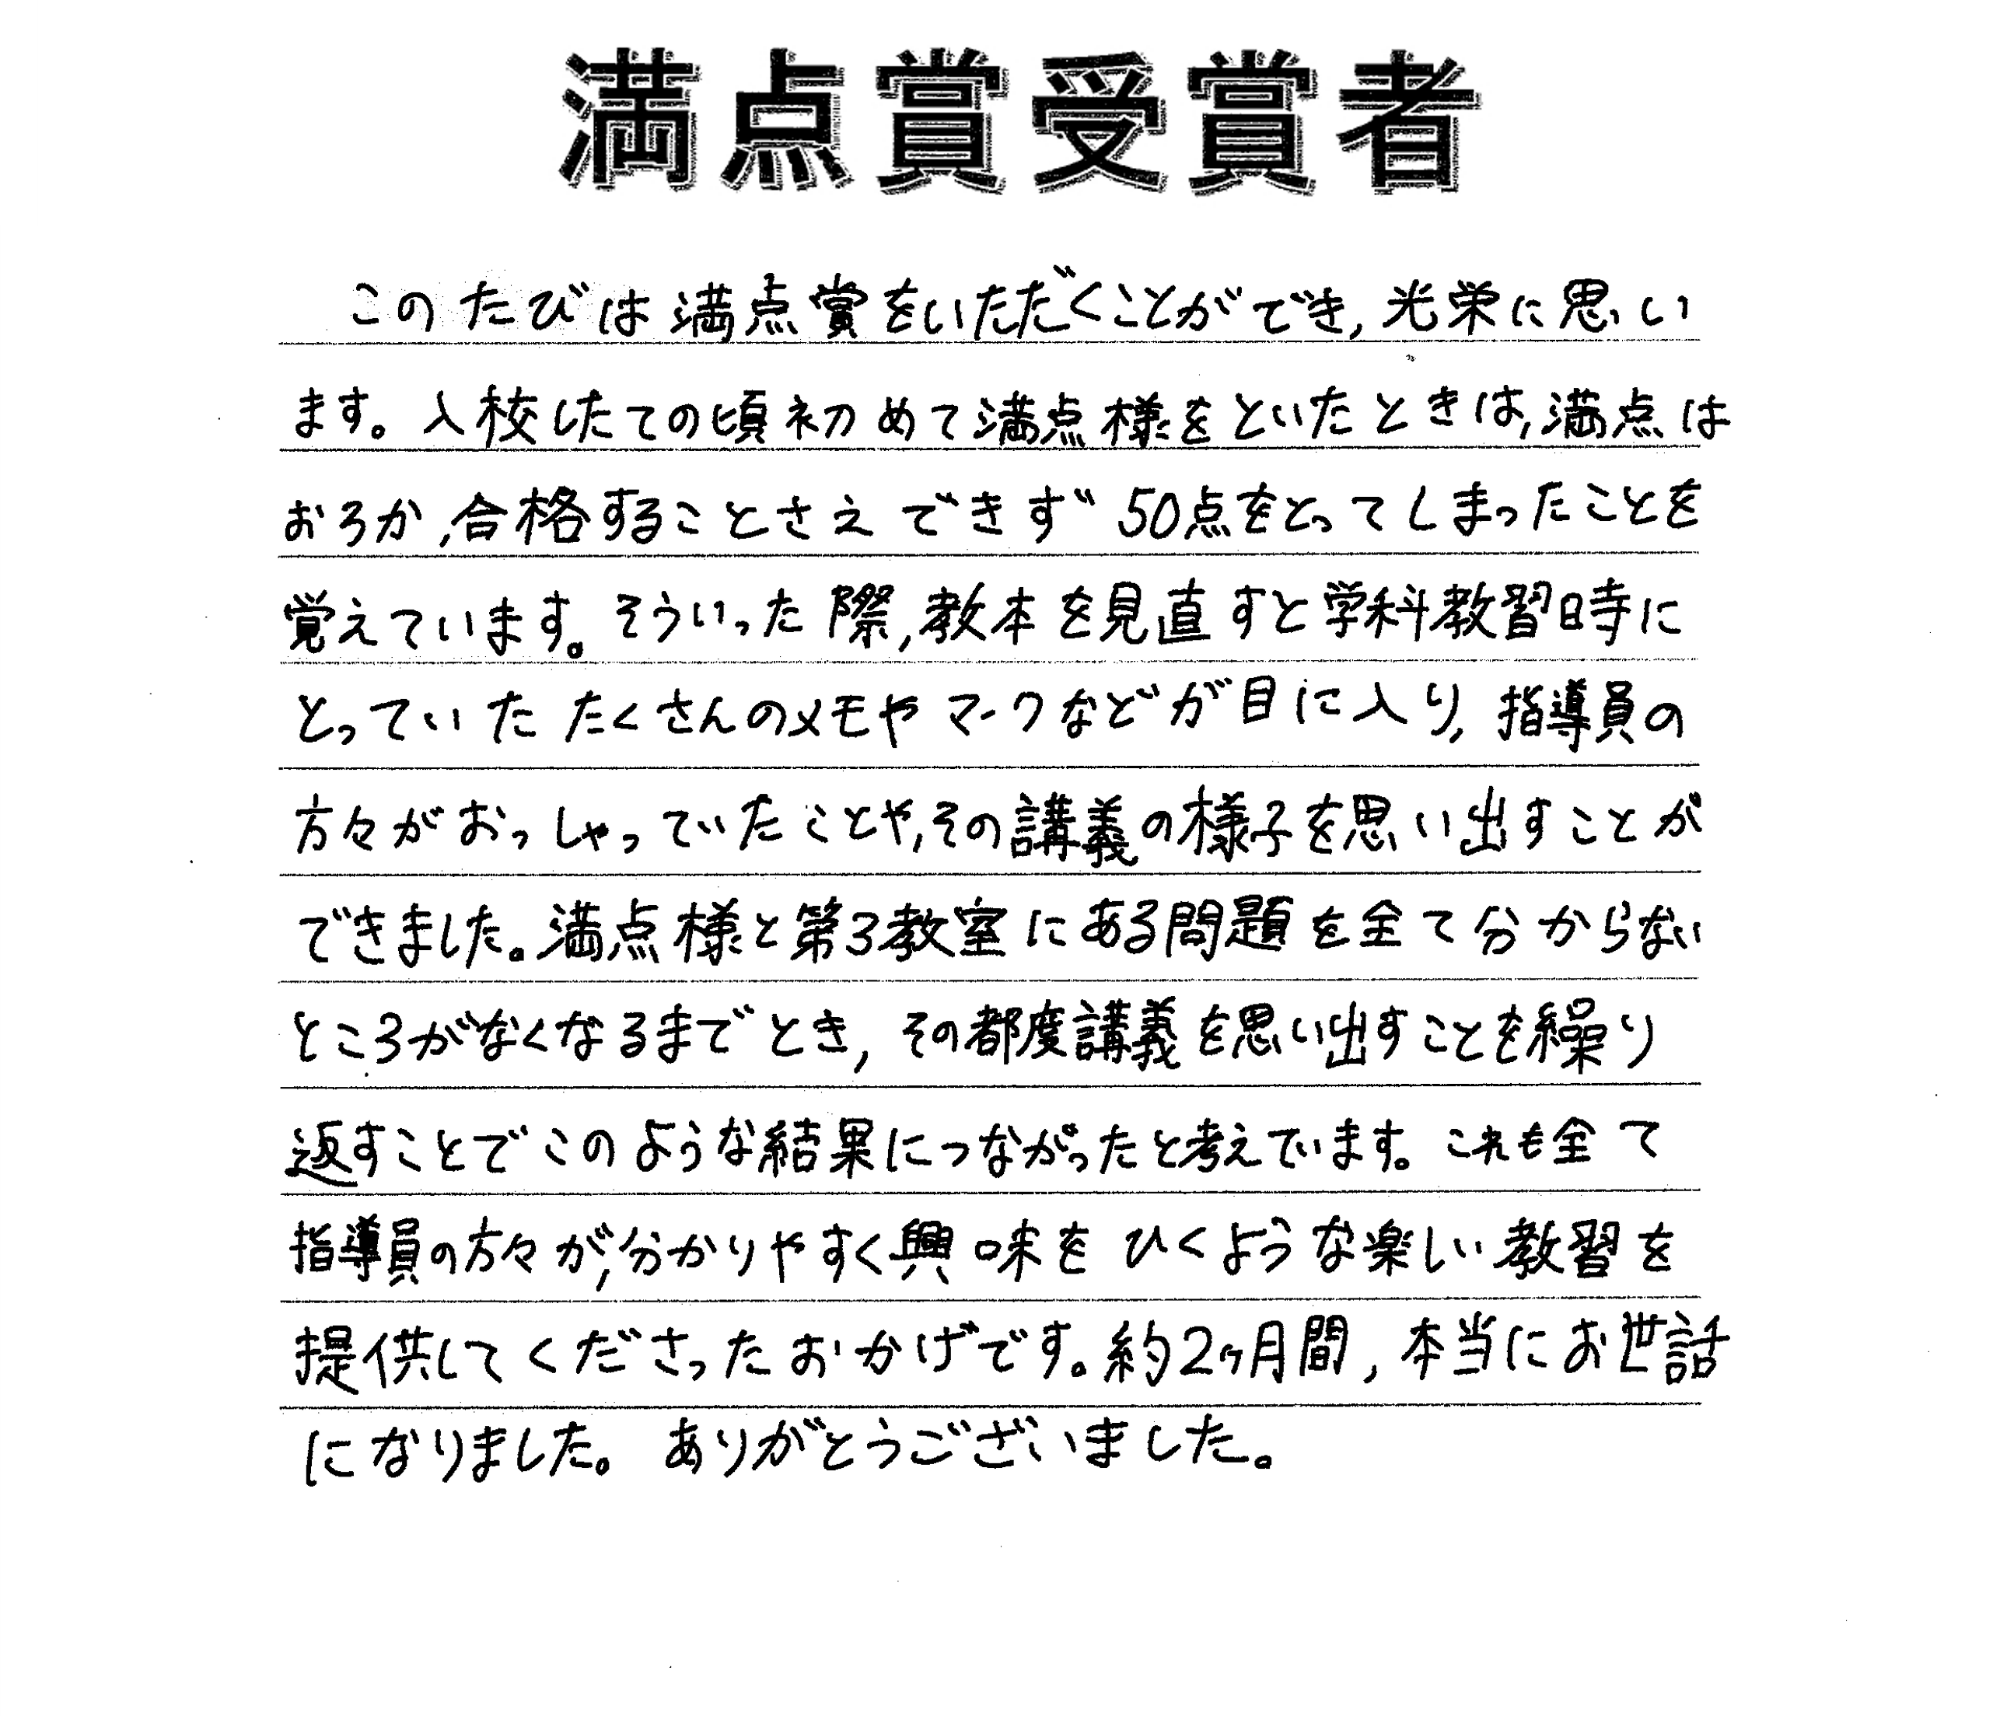 満点賞受賞者
このたびは満点賞をいただくことができ,光栄に思い
ます。入校したての頃初めて満点様をといたときは,満点は
おろか,合格することさえできず50点をとってしまったことを
覚えています。そういった際,教本を見直すと学科教習時に
とっていたたくさんのメモやマークなどが目に入り,指導員の
方々がおっしゃっていたことや,その講義の様子を思い出すことが
できました。満点様と第3教室にある問題を全て分からない
ところがなくなるまでとき,その都度講義を思い出すことを繰り
返すことでこのような結果につながったと考えています。これも全て
指導員の方々が,分かりやすく興味をひくような楽しい教習を
提供してくださったおかげです。約2ヶ月間,本当にお世話
になりました。ありがとうございました。